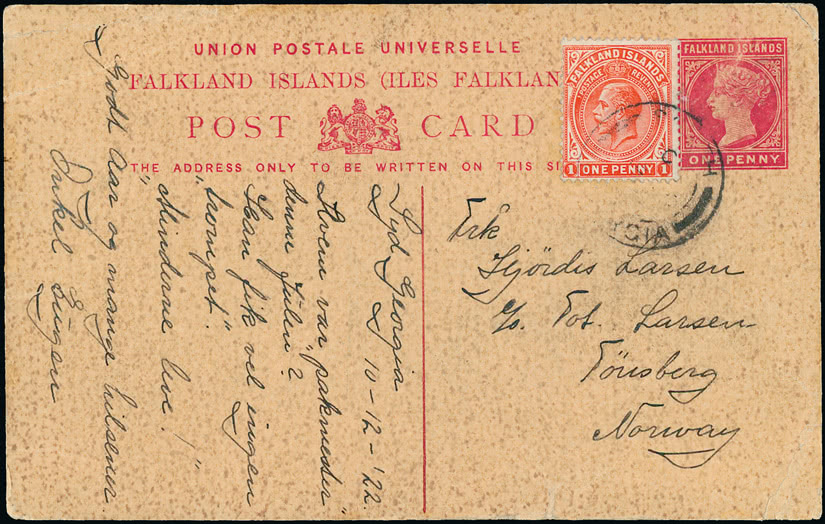 UNION POSTALE UNIVERSELLE
FALKLAND ISLANDS (ILES FALKLAN
POST CARD
THE ADDRESS ONLY TO BE WRITTEN ON THIS SI
FALKLAND ISLANDS
POSTAGE & REVENUE
1 ONE PENNY 1
FALKLAND ISLANDS
ONE PENNY
Frk
Hjördis Larsen
c/o. Fot. Larsen
Tönsberg
Norway
Syd Georgia
10-12-'22.
Hvem var "pakmester"
denne Julen?
Han fik vel ingen
"trompet".
"Minderne leve!"
Godt Aar og mange hilsener
Onkel Eugen